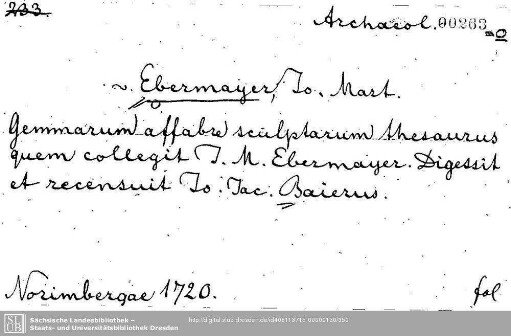 233.
Archaeol. 00283
v. Ebermayer, Jo. Mart.
Gemmarum affabre sculptarum thesaurus
quem collegit J. M. Ebermayer. Digessit
et recensuit Jo. Jac. Baierus.
Norimbergae 1720. fol
Sächsische Landesbibliothek –
Staats- und Universitätsbibliothek Dresden